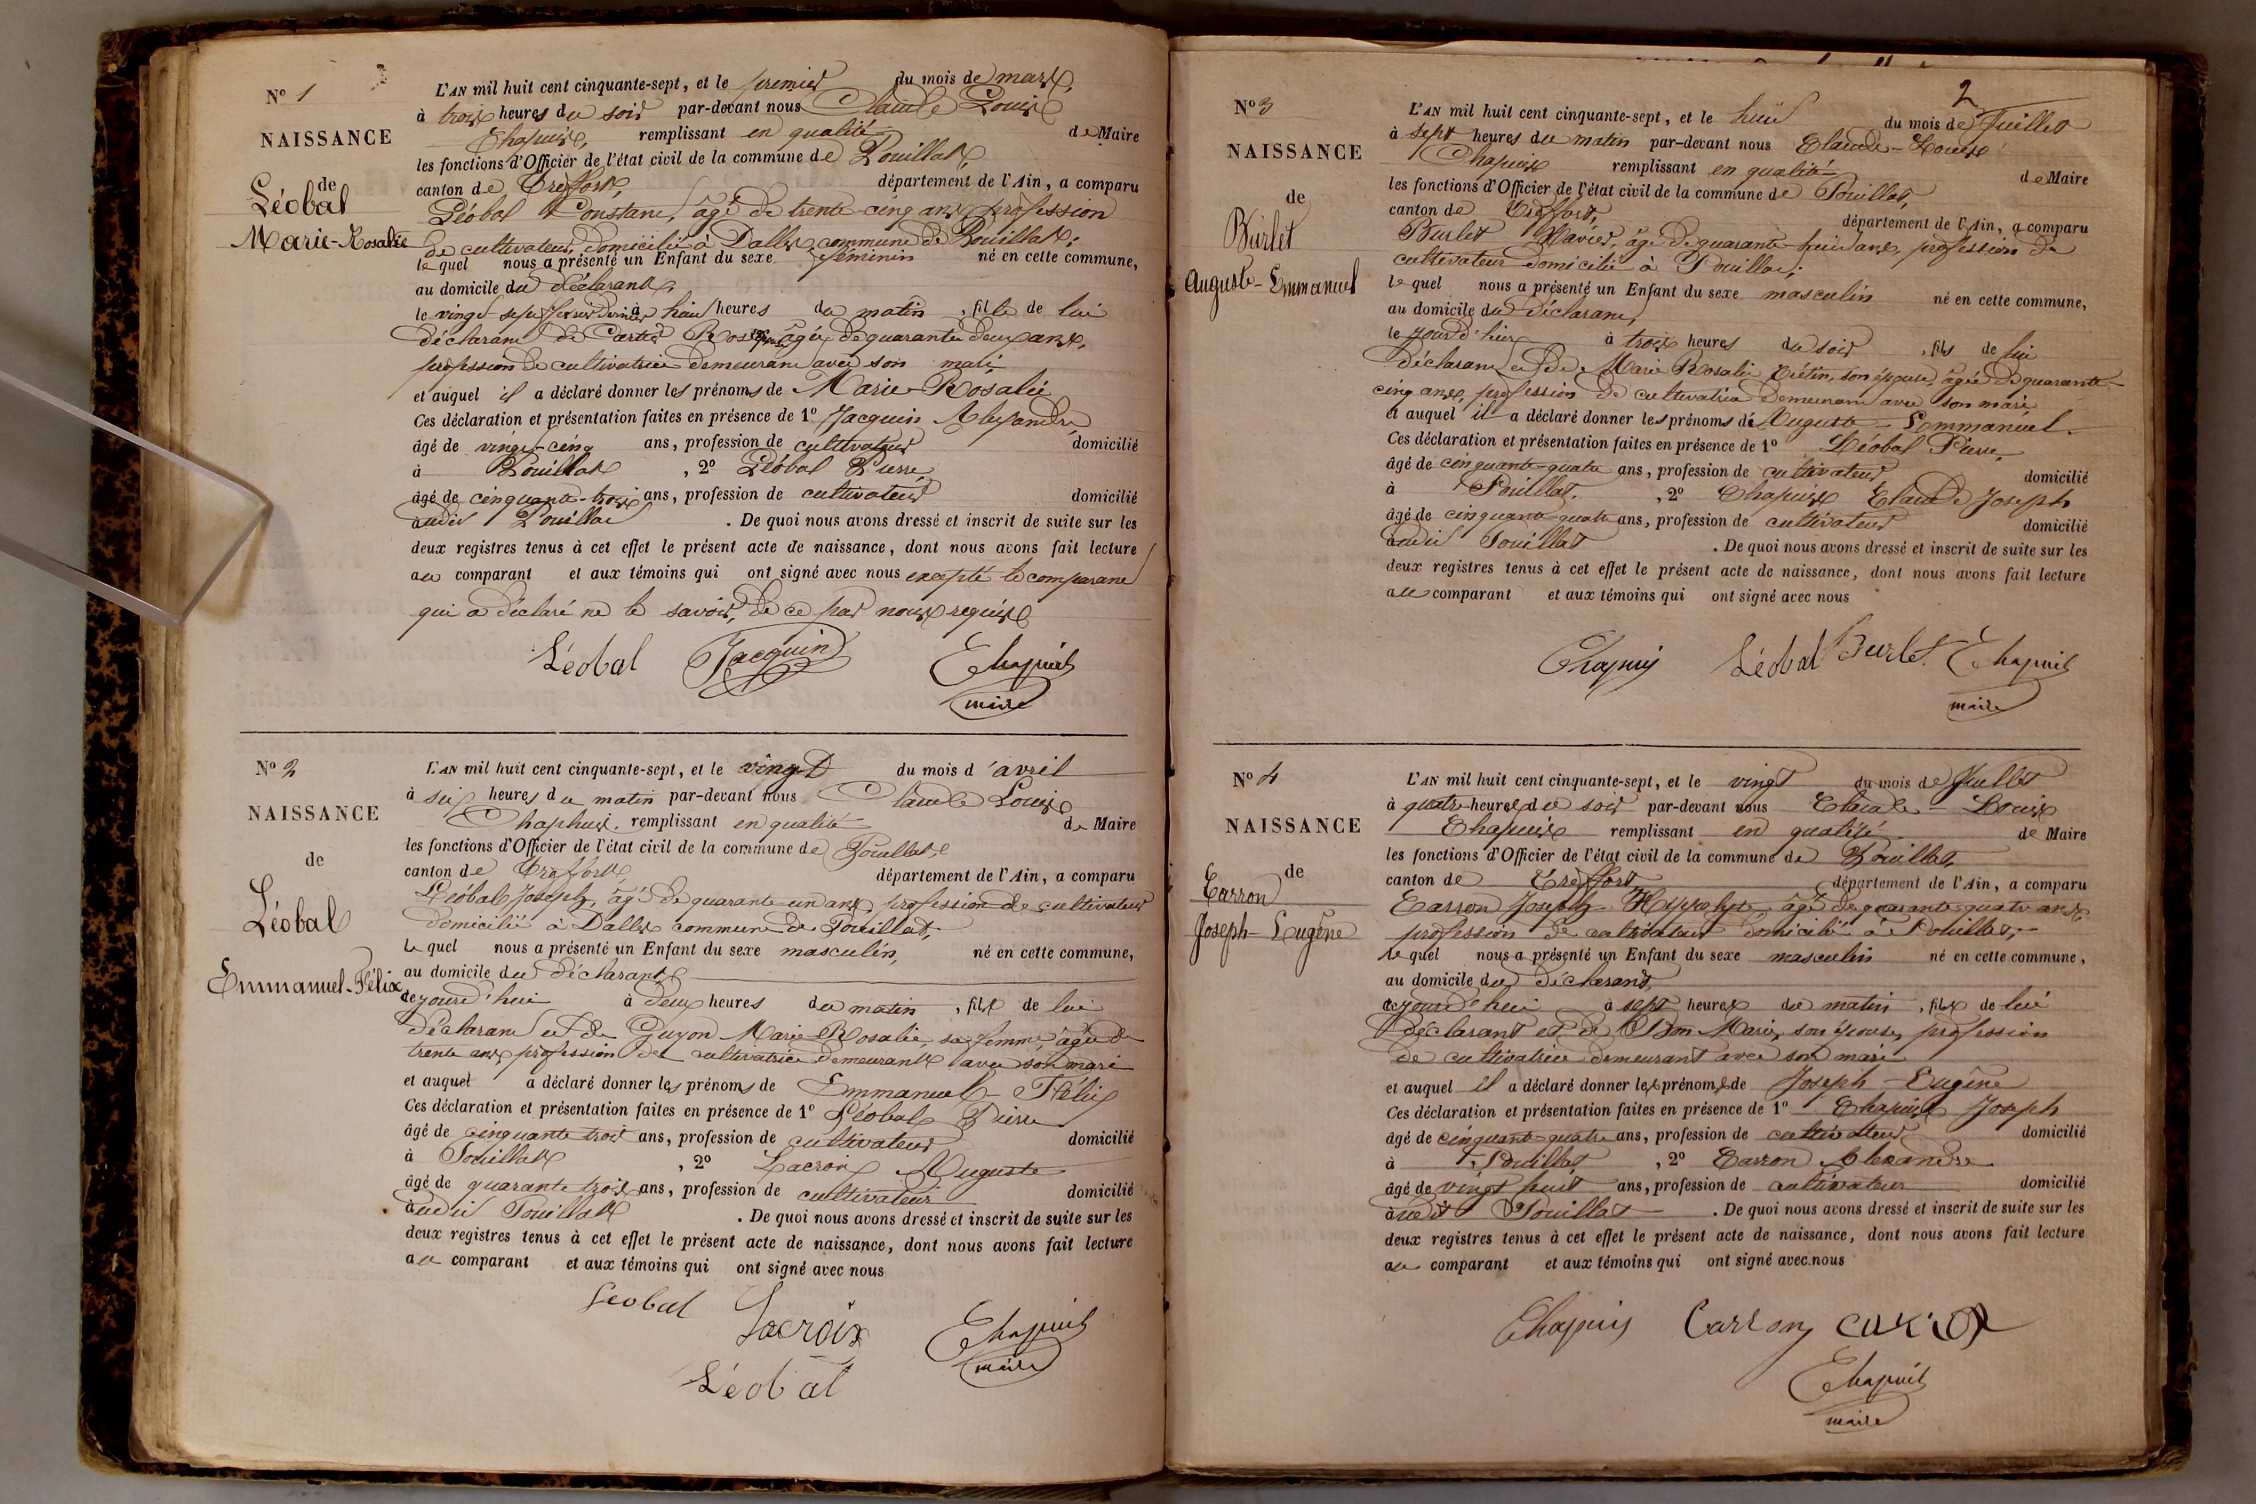 N° 1
NAISSANCE
de
Léobal
Marie-Rosalie
L'AN mil huit cent cinquante-sept, et le premier du mois de mars,
à trois heures du soir par-devant nous Claude Louis
Chapuis, remplissant en qualité de Maire
les fonctions d'Officier de l'état civil de la commune de Pouillat,
canton de Treffort, département de l'Ain, a comparu
Léobal Constant, âgé de trente-cinq ans, profession
de cultivateur, domicilié à Dalles, commune de Pouillat;
lequel nous a présenté un Enfant du sexe féminin né en cette commune,
au domicile du déclarant,
le vingt-sept février dernier à huit heures du matin, fille de lui
déclarant et de Cartier Rose âgée de quarante deux ans,
profession de cultivatrice demeurant avec son mari
et auquel il a déclaré donner les prénoms de Marie-Rosalie
Ces déclaration et présentation faites en présence de 1° Jacquin Alexandre
âgé de vingt-cinq ans, profession de cultivateur domicilié
à Pouillat, 2° Léobal Pierre
âgé de cinquante-trois ans, profession de cultivateur domicilié
audit Pouillat. De quoi nous avons dressé et inscrit de suite sur les
deux registres tenus à cet effet le présent acte de naissance, dont nous avons fait lecture
au comparant et aux témoins qui ont signé avec nous excepté le comparant
qui a déclaré ne le savoir, de ce par nous requis
Léobal Jacquin Chapuis
maire
N° 2
NAISSANCE
de
Léobal
Emmanuel-Félix
L'AN mil huit cent cinquante-sept, et le vingt du mois d'avril
à six heures du matin par-devant nous Claude Louis
Chaphuis. remplissant en qualité de Maire
les fonctions d'Officier de l'état civil de la commune de Pouillat,
canton de Treffort, département de l'Ain, a comparu
Léobal Joseph, âgé de quarante-un ans, profession de cultivateur
domicilié à Dalles commune de Pouillat;
lequel nous a présenté un Enfant du sexe masculin, né en cette commune,
au domicile du déclarant,
cejourd'hui à deux heures du matin, fils de lui
déclarant et de Guyon Marie-Rosalie, sa femme, âgée de
trente ans profession de cultivatrice demeurant avec son mari
et auquel a déclaré donner les prénoms de Emmanuel-Félix
Ces déclaration et présentation faites en présence de 1° Léobal Pierre
âgé de cinquante trois ans, profession de cultivateur domicilié
à Pouillat, 2° Lacroix Auguste
âgé de quarante trois ans, profession de cultivateur domicilié
audit Pouillat. De quoi nous avons dressé et inscrit de suite sur les
deux registres tenus à cet effet le présent acte de naissance, dont nous avons fait lecture
au comparant et aux témoins qui ont signé avec nous
Leobal Lacroix Chapuis
maire
Léobal
2
N° 3
NAISSANCE
de
Burlet
Auguste-Emmanuel
L'AN mil huit cent cinquante-sept, et le huit du mois de Juillet
à sept heures du matin par-devant nous Claude-Louis
Chapuis remplissant en qualité de Maire
les fonctions d'Officier de l'état civil de la commune de Pouillat,
canton de Treffort, département de l'Ain, a comparu
Burlet Xavier, âgé de quarante-huit ans, profession de
cultivateur domicilié à Pouillat;
lequel nous a présenté un Enfant du sexe masculin né en cette commune,
au domicile du déclarant,
le jour d'hier à trois heures du soir, fils de lui
déclarant et de Marie Rosalie Crétin, son épouse, âgée de quarante-
cinq ans, profession de cultivatrice demeurant avec son mari
et auquel il a déclaré donner les prénoms de Auguste-Emmanuel.
Ces déclaration et présentation faites en présence de 1° Léobal Pierre,
âgé de cinquante-quatre ans, profession de cultivateur domicilié
à Pouillat. , 2° Chapuis Claude Joseph
âgé de cinquante-quatre ans, profession de cultivateur domicilié
audit Pouillat. De quoi nous avons dressé et inscrit de suite sur les
deux registres tenus à cet effet le présent acte de naissance, dont nous avons fait lecture
au comparant et aux témoins qui ont signé avec nous
Chapuis Léobal Burlet. Chapuis
maire
N° 4
NAISSANCE
de
Carron
Joseph-Eugène
L'AN mil huit cent cinquante-sept, et le vingt du mois de Juillet
à quatre heures du soir par-devant nous Claude-Louis
Chapuis remplissant en qualité de Maire
les fonctions d'Officier de l'état civil de la commune de Pouillat,
canton de Treffort, département de l'Ain, a comparu
Carron Joseph-Hyppolyte âgé de quarante-quatre ans
profession de cultivateur domicilié à Pouillat;
lequel nous a présenté un Enfant du sexe masculin né en cette commune,
au domicile du déclarant,
cejourd'hui à sept heures du matin, fils de lui
déclarant et de Marie, son épouse, profession
de cultivatrice demeurant avec son mari
et auquel il a déclaré donner les prénoms de Joseph-Eugène
Ces déclaration et présentation faites en présence de 1° Chapuis Joseph
âgé de cinquante-quatre ans, profession de cultivateur domicilié
à Pouillat, , 2° Carron Alexandre
âgé de vingt huit ans, profession de cultivateur domicilié
audit Pouillat. De quoi nous avons dressé et inscrit de suite sur les
deux registres tenus à cet effet le présent acte de naissance, dont nous avons fait lecture
au comparant et aux témoins qui ont signé avec nous
Chapuis Carron
Chapuis
maire